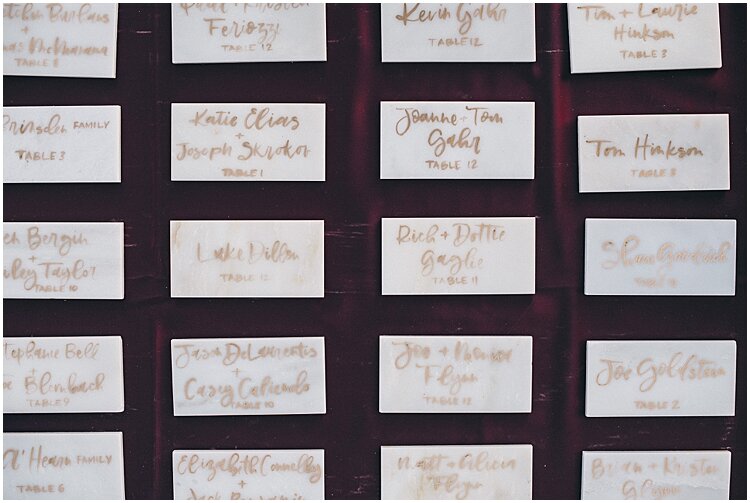 Burhans
+
McManama
TABLE 8
Feriozzi
TABLE 12
Kevin Gahr
TABLE 12
Tim + Laurie
Hinkson
TABLE 3
FAMILY
TABLE 3
Katie Elias
+
Joseph Skrokov
TABLE 1
Joanne + Tom
Gahr
TABLE 12
Tom Hinkson
TABLE 3
Bergin
+
Taylor
TABLE 10
Luke Dillon
TABLE 12
Rich + Dottie
Gaglie
TABLE 11
TABLE
Stephanie Bell
+
Blembach
TABLE 9
Jason DeLaurentis
+
Casey Caliendo
TABLE 10
Joe + Monica
Flynn
TABLE 12
Joe Goldstein
TABLE 2
O'Hearn FAMILY
TABLE 6
Elizabeth Connelley
+
Jack
Matt + Alicia
Flynn
Brian + Kristen